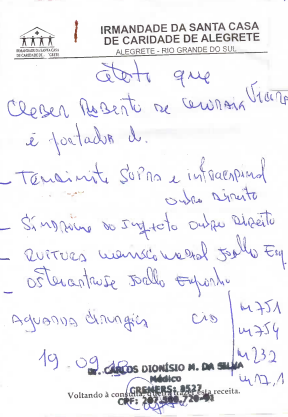 IRMANDADE DA SANTA CASA
DE CARIDADE DE ALEGRETE
ALEGRETE - RIO GRANDE DO SUL
IRMANDADE DA SANTA CASA
DE CARIDADE DE
Atesto que
Cleber Roberto de
é portador de
- Tendinite Supra e infraespinal
ombro Direito
- Síndrome do Impacto ombro Direito
- Ruptura meniscal Joelho Esq
- Osteoartrose Joelho Esquerdo
Aguarda cirurgia CID
M751
M754
M232
M17.1
19.09
Dr. CARLOS DIONÍSIO M. DA SILVA
Médico
CREMERS: 8527
Voltando à consulta, queira trazer esta receita.
CPF: